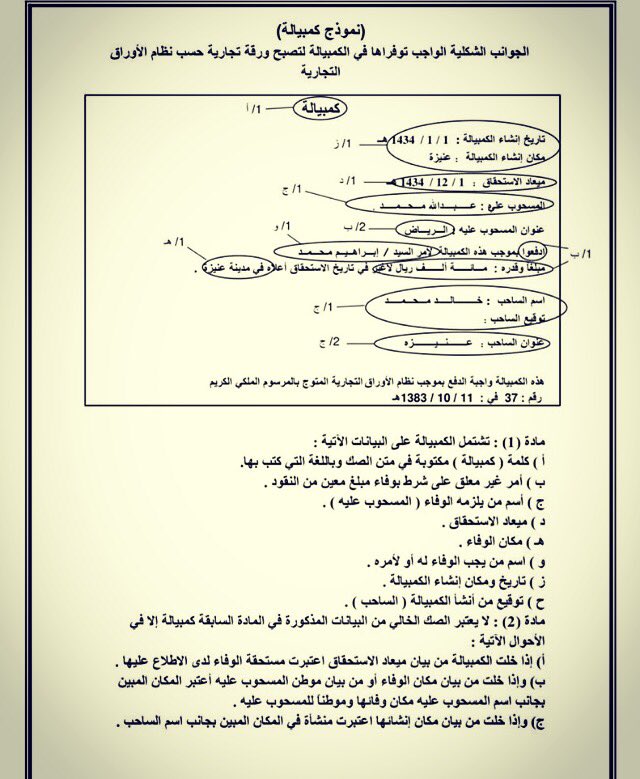 (نموذج كمبيالة)
الجوانب الشكلية الواجب توفراها في الكمبيالة لتصبح ورقة تجارية حسب نظام الأوراق
التجارية
كمبيالة
1/ أ
تاريخ إنشاء الكمبيالة : 1 / 1 / 1434 هـ
مكان إنشاء الكمبيالة : عنيزة
1/ ز
ميعاد الاستحقاق : 1 / 12 / 1434 هـ
1/ د
المسحوب عليه : عــبــدالله محــمــد .
1/ ج
عنوان المسحوب عليه : الــريــاض
2/ ب
1/ و
1/ هـ
ادفعوا بموجب هذه الكمبيالة لأمر السيد / إبــراهــيــم محــمــد
1/ ب
مبلغاً وقدره : مــائــة ألــف ريال لاغير في تاريخ الاستحقاق أعلاه في مدينة عنيزة .
اسم الساحب : خــالــد محــمــد
توقيع الساحب :
1/ ج
عنوان الساحب : عــنــيــزه
2/ ج
هذه الكمبيالة واجبة الدفع بموجب نظام الأوراق التجارية المتوج بالمرسوم الملكي الكريم
رقم : 37 في : 11 / 10 / 1383هـ
مادة (1) : تشتمل الكمبيالة على البيانات الآتية :
أ ) كلمة ( كمبيالة ) مكتوبة في متن الصك وباللغة التي كتب بها.
ب ) أمر غير معلق على شرط بوفاء مبلغ معين من النقود .
ج ) أسم من يلزمه الوفاء ( المسحوب عليه ) .
د ) ميعاد الاستحقاق .
هـ ) مكان الوفاء .
و ) اسم من يجب الوفاء له أو لأمره .
ز ) تاريخ ومكان إنشاء الكمبيالة .
ح ) توقيع من أنشأ الكمبيالة ( الساحب ) .
مادة (2) : لا يعتبر الصك الخالي من البيانات المذكورة في المادة السابقة كمبيالة إلا في
الأحوال الآتية :
أ) إذا خلت الكمبيالة من بيان ميعاد الاستحقاق اعتبرت مستحقة الوفاء لدى الاطلاع عليها .
ب) وإذا خلت من بيان مكان الوفاء أو من بيان موطن المسحوب عليه أعتبر المكان المبين
بجانب اسم المسحوب عليه مكان وفائها وموطناً للمسحوب عليه .
ج) وإذا خلت من بيان مكان إنشائها اعتبرت منشأة في المكان المبين بجانب اسم الساحب .